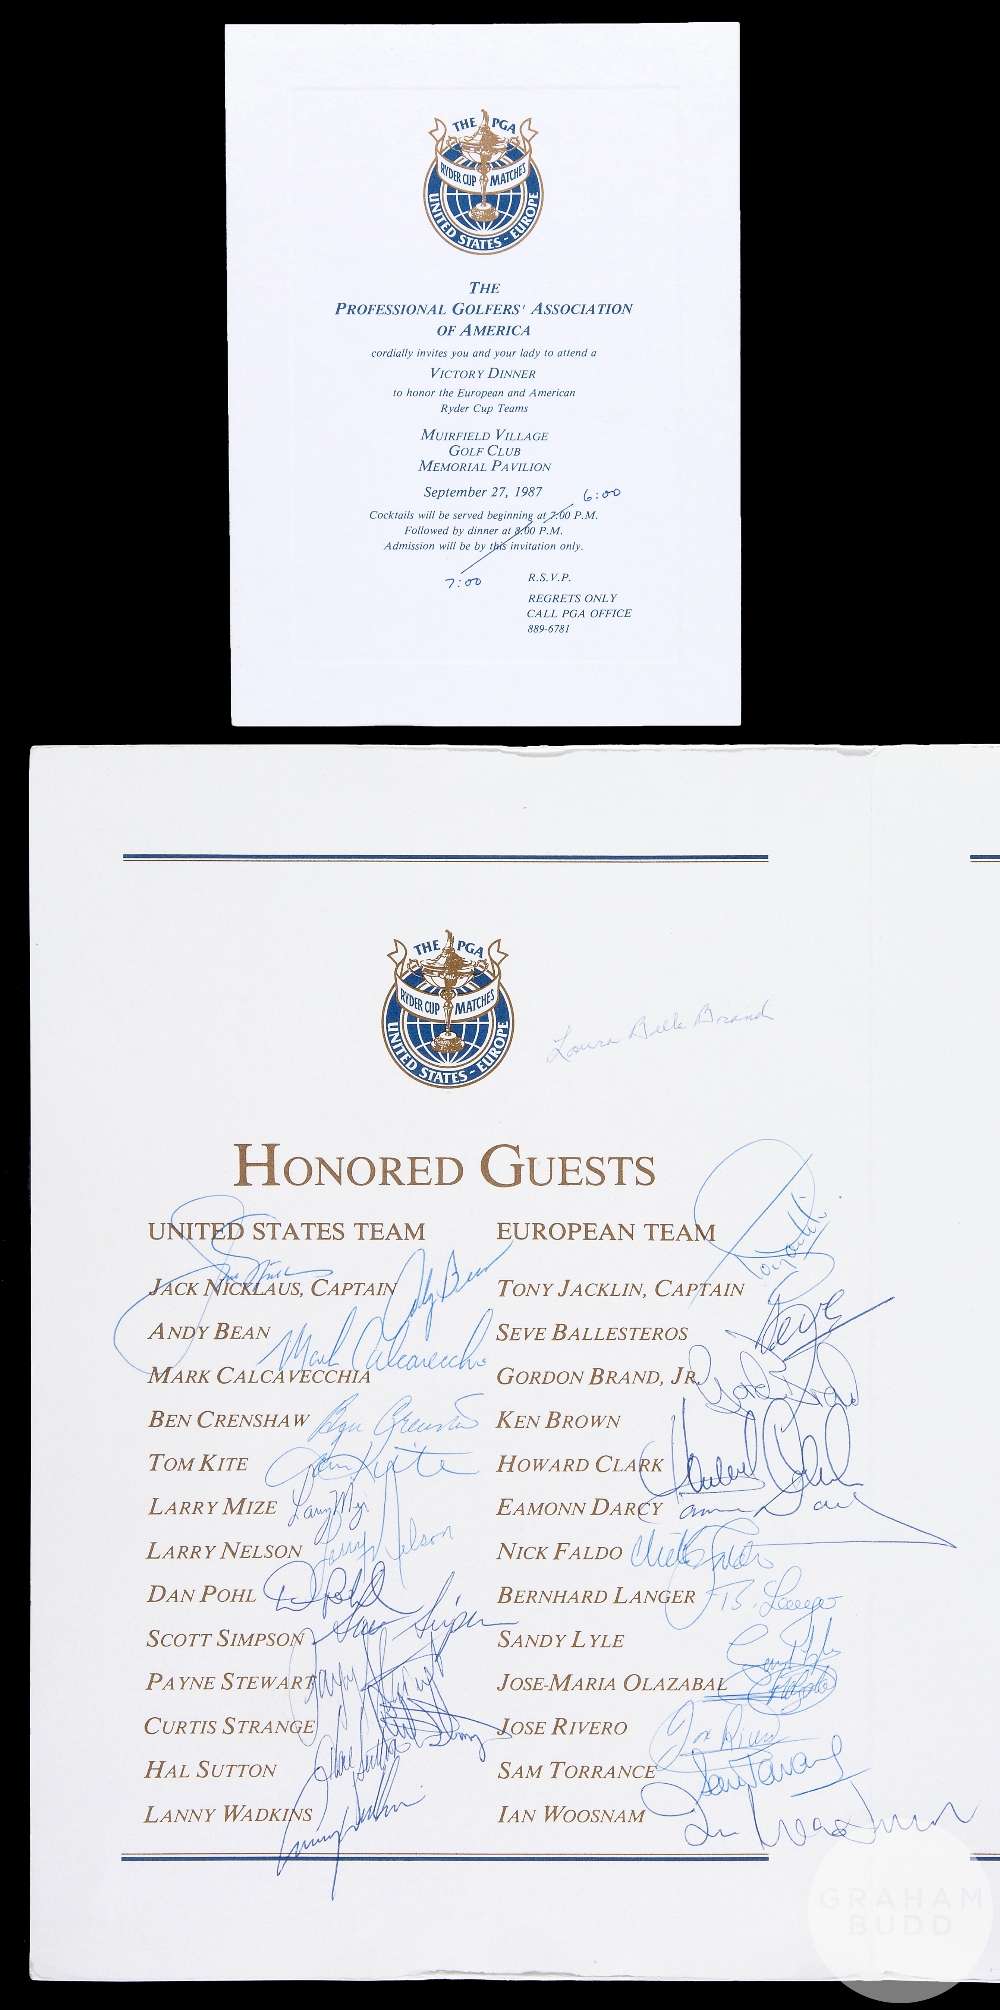 THE PGA
RYDER CUP MATCHES
UNITED STATES - EUROPE
THE
PROFESSIONAL GOLFERS' ASSOCIATION
OF AMERICA
cordially invites you and your lady to attend a
VICTORY DINNER
to honor the European and American
Ryder Cup Teams
MUIRFIELD VILLAGE
GOLF CLUB
MEMORIAL PAVILION
September 27, 1987
6:00
Cocktails will be served beginning at 7:00 P.M.
Followed by dinner at 8:00 P.M.
Admission will be by this invitation only.
7:00
R.S.V.P.
REGRETS ONLY
CALL PGA OFFICE
889-6781
THE PGA
RYDER CUP MATCHES
UNITED STATES - EUROPE
Laura Belle Brand
HONORED GUESTS
UNITED STATES TEAM
JACK NICKLAUS, CAPTAIN
ANDY BEAN
Andy Bean
MARK CALCAVECCHIA
Mark Calcavecchia
BEN CRENSHAW
Ben Crenshaw
TOM KITE
Tom Kite
LARRY MIZE
Larry Mize
LARRY NELSON
Larry Nelson
DAN POHL
D Pohl
SCOTT SIMPSON
Scott Simpson
PAYNE STEWART
CURTIS STRANGE
HAL SUTTON
Hal Sutton
LANNY WADKINS
EUROPEAN TEAM
TONY JACKLIN, CAPTAIN
SEVE BALLESTEROS
Seve
GORDON BRAND, JR.
Gordon Brand
KEN BROWN
HOWARD CLARK
Howard Clark
EAMONN DARCY
Eamonn Darcy
NICK FALDO
Nick Faldo
BERNHARD LANGER
B. Langer
SANDY LYLE
Sandy Lyle
JOSE-MARIA OLAZABAL
JOSE RIVERO
Jose Rivero
SAM TORRANCE
Sam Torrance
IAN WOOSNAM
Ian Woosnam
GRAHAM
BUDD